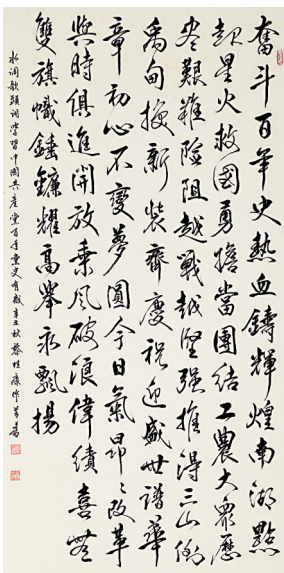 奮斗百年史熱血鑄輝煌南湖點
起星火救國勇擔當團結工農大眾歷
盡艱難險阻越戰越堅强推得三山倒
禹甸換新裝齊慶祝迎盛世譜華
章初心不變夢圓今日氣昂昂改革
與時俱進開放乘風破浪偉績喜無
雙旗幟錘鐮耀高舉永飄揚
水調歌頭詞學習中國共產黨百年黨史有感辛丑秋黎桂康作並書